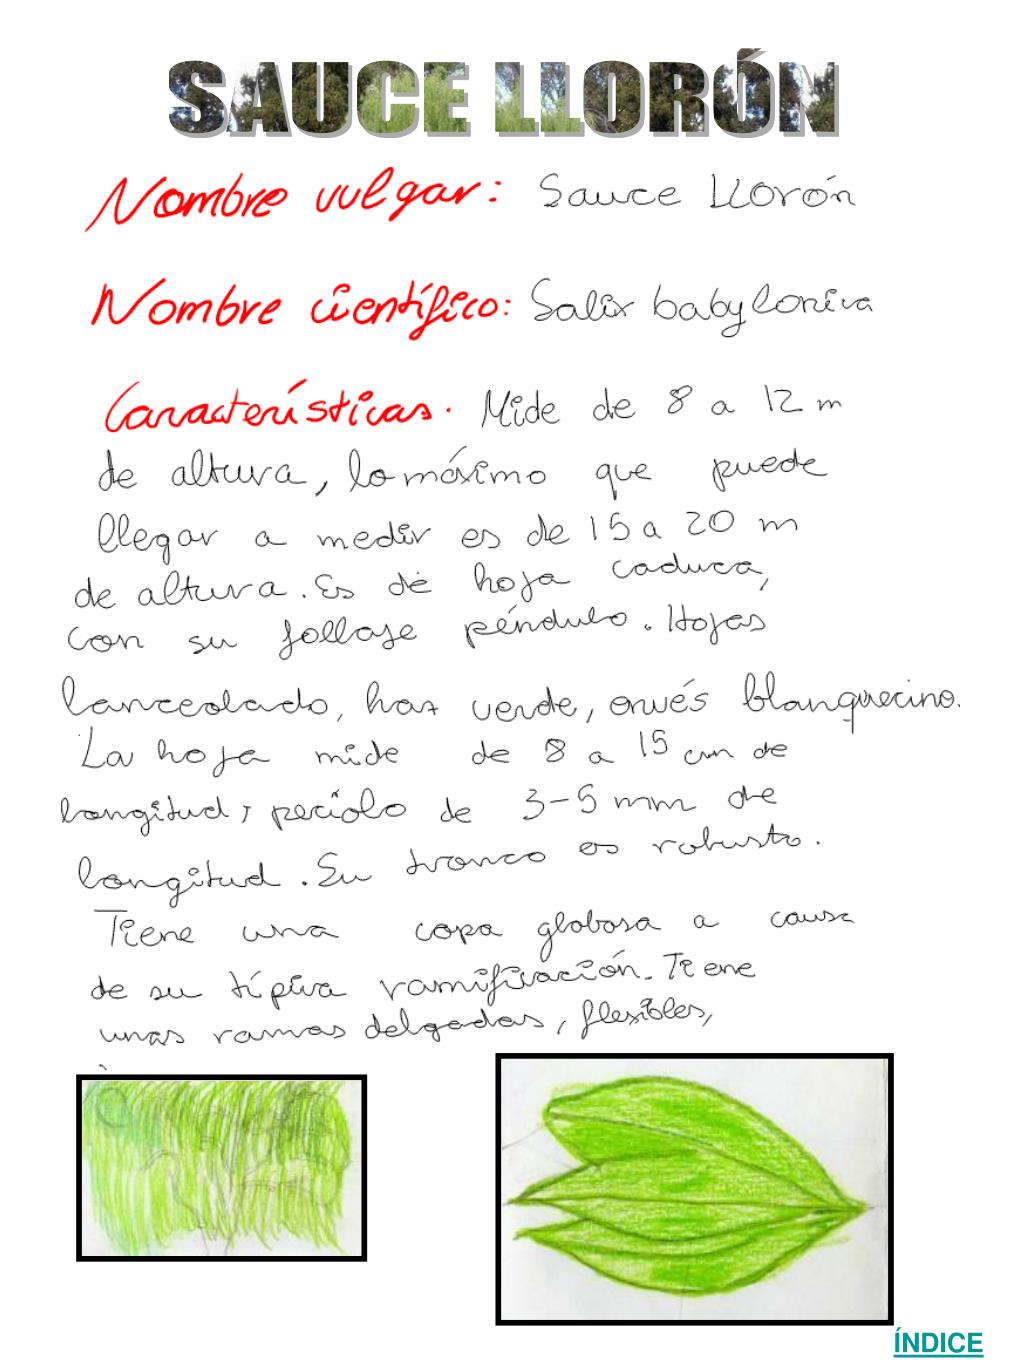 SAUCE LLORÓN
Nombre vulgar: Sauce Llorón
Nombre científico: Salix babylonica
Características. Mide de 8 a 12 m
de altura, lo máximo que puede
llegar a medir es de 15 a 20 m
de altura. Es de hoja caduca,
con su follaje péndulo. Hojas
lanceolado, haz verde, envés blanquecino.
La hoja mide de 8 a 15 cm de
longitud; pecíolo de 3-5 mm de
longitud. Su tronco es robusto.
Tiene una copa globosa a causa
de su típica ramificación. Tiene
unas ramas delgadas, flexibles,
ÍNDICE